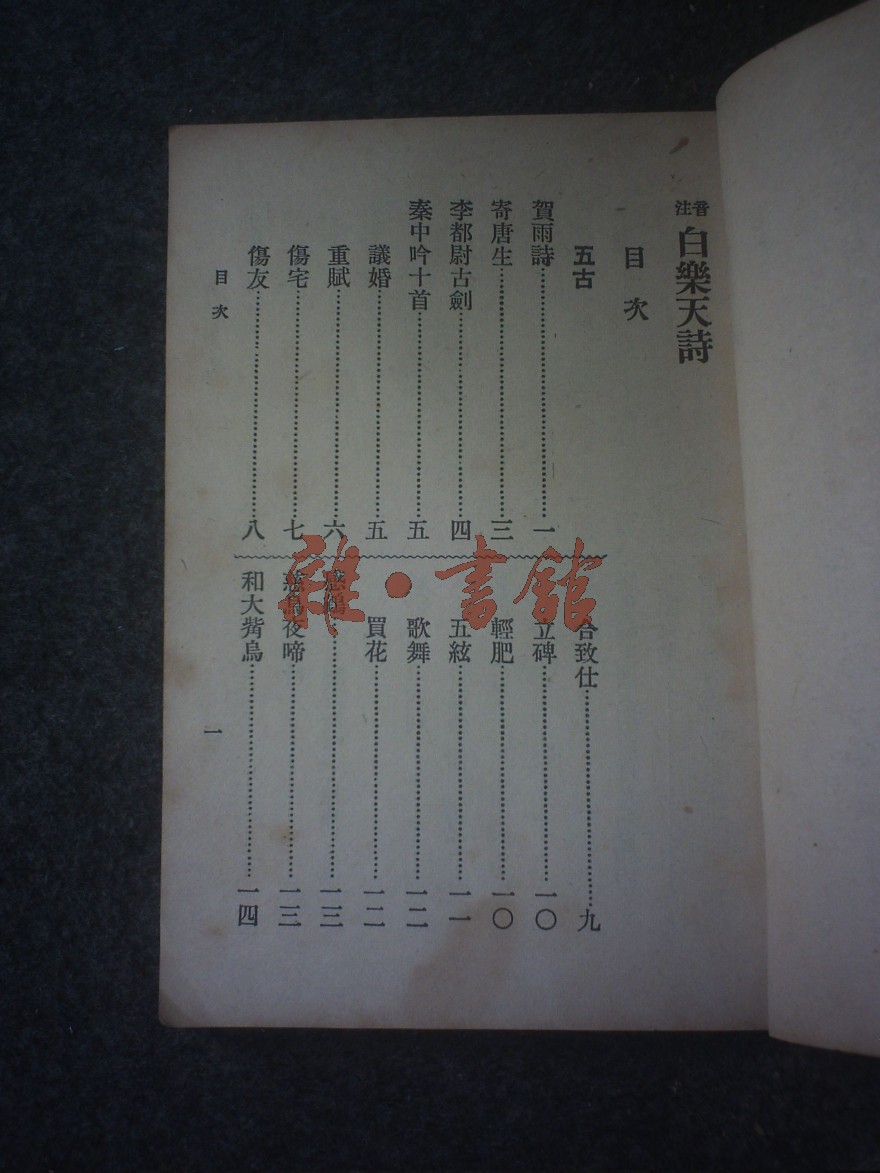 音注 白樂天詩
目次
五古
賀雨詩……一
寄唐生……三
李都尉古劍……四
秦中吟十首……五
議婚……五
重賦……六
傷宅……七
傷友……八
合致仕……九
立碑……一〇
輕肥……一〇
五絃……一一
歌舞……一二
買花……一二
感鶴……一三
慈烏夜啼……一三
和大觜烏……一四
目次
一
雜·書館